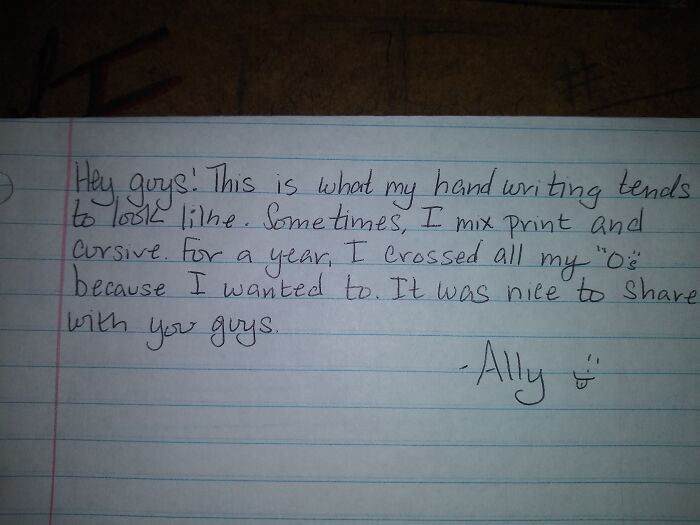 Hey guys! This is what my hand writing tends
to look like. Sometimes, I mix print and
cursive. For a year, I crossed all my "O"s
because I wanted to. It was nice to share
with you guys.
-Ally